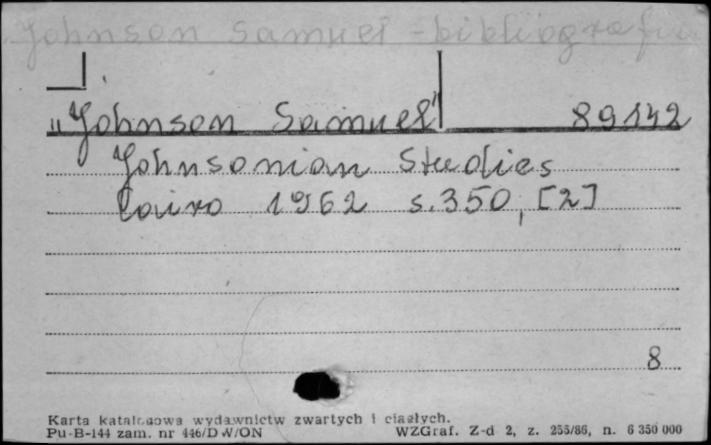 Johnson Samuel - bibliografia
"Johnson Samuel" 89142
Johnsonian Studies
Cairo 1962 s.350, [2]
8
Karta katalogowa wydawnictw zwartych i ciągłych.
Pu-B-144 zam. nr 446/DW/ON WZGraf. Z-d 2, z. 255/86, n. 6 350 000